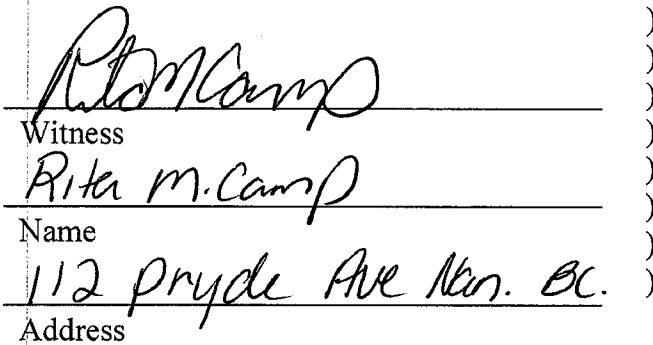 Rita M Camp )
)
)
Witness )
Rita M. Camp )
)
Name )
112 Pryde Ave Nan. BC. )
Address